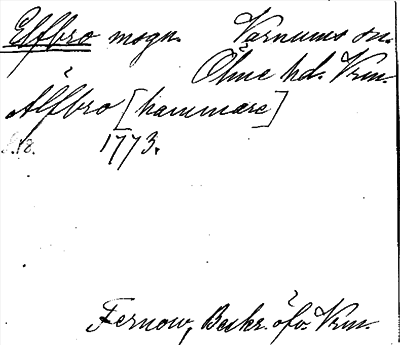 Elfbro msgn. Varnums sn.
Ölme hd. Vrm.
Älfbro [hammare]
1773.
Fernow, Beskr. öfv. Vrm.